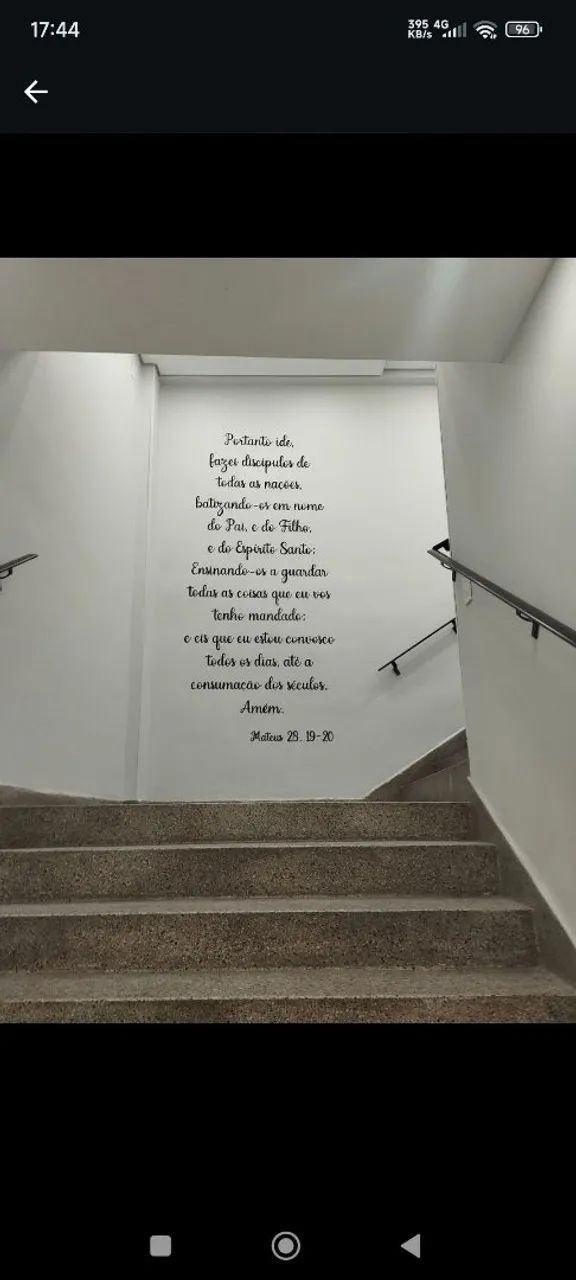 17:44
395 4G
KB/s
96
Portanto ide,
fazei discípulos de
todas as nações,
batizando-os em nome
do Pai, e do Filho,
e do Espírito Santo;
Ensinando-os a guardar
todas as coisas que eu vos
tenho mandado;
e eis que eu estou convosco
todos os dias, até a
consumação dos séculos.
Amém.
Mateus 28. 19-20